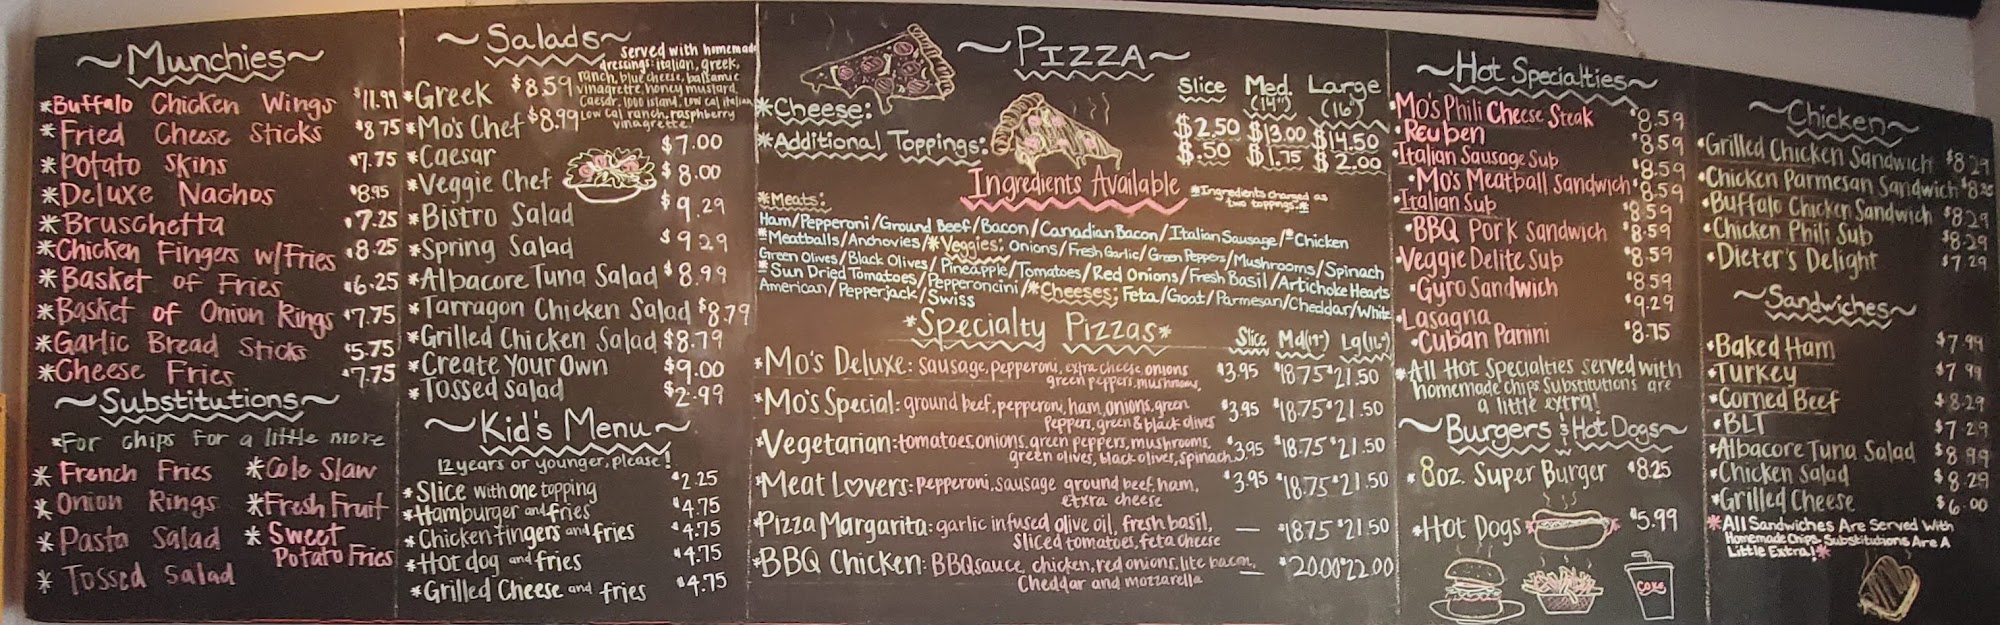 ~Munchies~
*Buffalo Chicken Wings $11.99
*Fried Cheese Sticks $8.75
*Potato Skins $7.75
*Deluxe Nachos $8.95
*Bruschetta $7.25
*Chicken Fingers w/Fries $8.25
*Basket of Fries $6.25
*Basket of Onion Rings $7.75
*Garlic Bread Sticks $5.75
*Cheese Fries $7.75
~Substitutions~
*For chips for a little more
*French Fries *Cole Slaw
*Onion Rings *Fresh Fruit
*Pasta Salad *Sweet Potato Fries
*Tossed Salad
~Salads~
served with homemade
dressings: italian, greek,
ranch, blue cheese, balsamic
vinagrette, honey mustard,
Caesar, 1000 island, Low cal italian,
Low cal ranch, raspberry
vinagrette.
*Greek $8.59
*Mo's Chef $8.99
*Caesar $7.00
*Veggie Chef $8.00
*Bistro Salad $9.29
*Spring Salad $9.29
*Albacore Tuna Salad $8.99
*Tarragon Chicken Salad $8.79
*Grilled Chicken Salad $8.79
*Create Your Own $9.00
*Tossed Salad $2.99
~Kid's Menu~
12 years or younger, please!
*Slice with one topping $2.25
*Hamburger and fries $4.75
*Chicken fingers and fries $4.75
*Hot dog and fries $4.75
*Grilled Cheese and fries $4.75
~PIZZA~
Slice Med. (14") Large (16")
*Cheese: $2.50 $13.00 $14.50
*Additional Toppings: $.50 $1.75 $2.00
Ingredients Available
*Ingredients charged as
two toppings.*
*Meats:
Ham/Pepperoni/Ground Beef/Bacon/Canadian Bacon/Italian Sausage/*Chicken
*Meatballs/Anchovies/*Veggies: Onions/Fresh Garlic/Green Peppers/Mushrooms/Spinach
Green Olives/Black Olives/Pineapple/Tomatoes/Red Onions/Fresh Basil/Artichoke Hearts
*Sun Dried Tomatoes/Pepperoncini/*Cheeses: Feta/Goat/Parmesan/Cheddar/White
American/Pepperjack/Swiss
*Specialty Pizzas*
Slice Md(14") Lg(16")
*Mo's Deluxe: sausage, pepperoni, extra cheese, onions $3.95 $18.75 $21.50
green peppers, mushrooms,
*Mo's Special: ground beef, pepperoni, ham, onions, green $3.95 $18.75 $21.50
peppers, green & black olives
*Vegetarian: tomatoes, onions, green peppers, mushrooms, $3.95 $18.75 $21.50
green olives, black olives, spinach
*Meat Lovers: pepperoni, sausage ground beef, ham, $3.95 $18.75 $21.50
extxra cheese
*Pizza Margarita: garlic infused olive oil, fresh basil, — $18.75 $21.50
Sliced tomatoes, feta cheese
*BBQ Chicken: BBQ sauce, chicken, red onions, lite bacon, — $20.00 $22.00
Cheddar and mozzarella
~Hot Specialties~
•Mo's Phili Cheese Steak $8.59
•Reuben $8.59
•Italian Sausage Sub $8.59
•Mo's Meatball Sandwich $8.59
•Italian Sub $8.59
•BBQ Pork Sandwich $8.59
•Veggie Delite Sub $8.59
•Gyro Sandwich $8.59
•Lasagna $9.29
•Cuban Panini $8.75
*All Hot Specialties served with
homemade chips Substitutions are
a little extra!
~Burgers & Hot Dogs~
*8oz. Super Burger $8.25
*Hot Dogs $5.99
COKE
~Chicken~
•Grilled Chicken Sandwich $8.29
•Chicken Parmesan Sandwich
•Buffalo Chicken Sandwich $8.29
•Chicken Phili Sub $8.29
•Dieter's Delight $7.29
~Sandwiches~
•Baked Ham $7.99
•Turkey $7.99
•Corned Beef $8.29
•BLT $7.29
•Albacore Tuna Salad $8.99
•Chicken Salad $8.29
•Grilled Cheese $6.00
*All Sandwiches Are Served With
Homemade Chips. Substitutions Are A
Little Extra!*